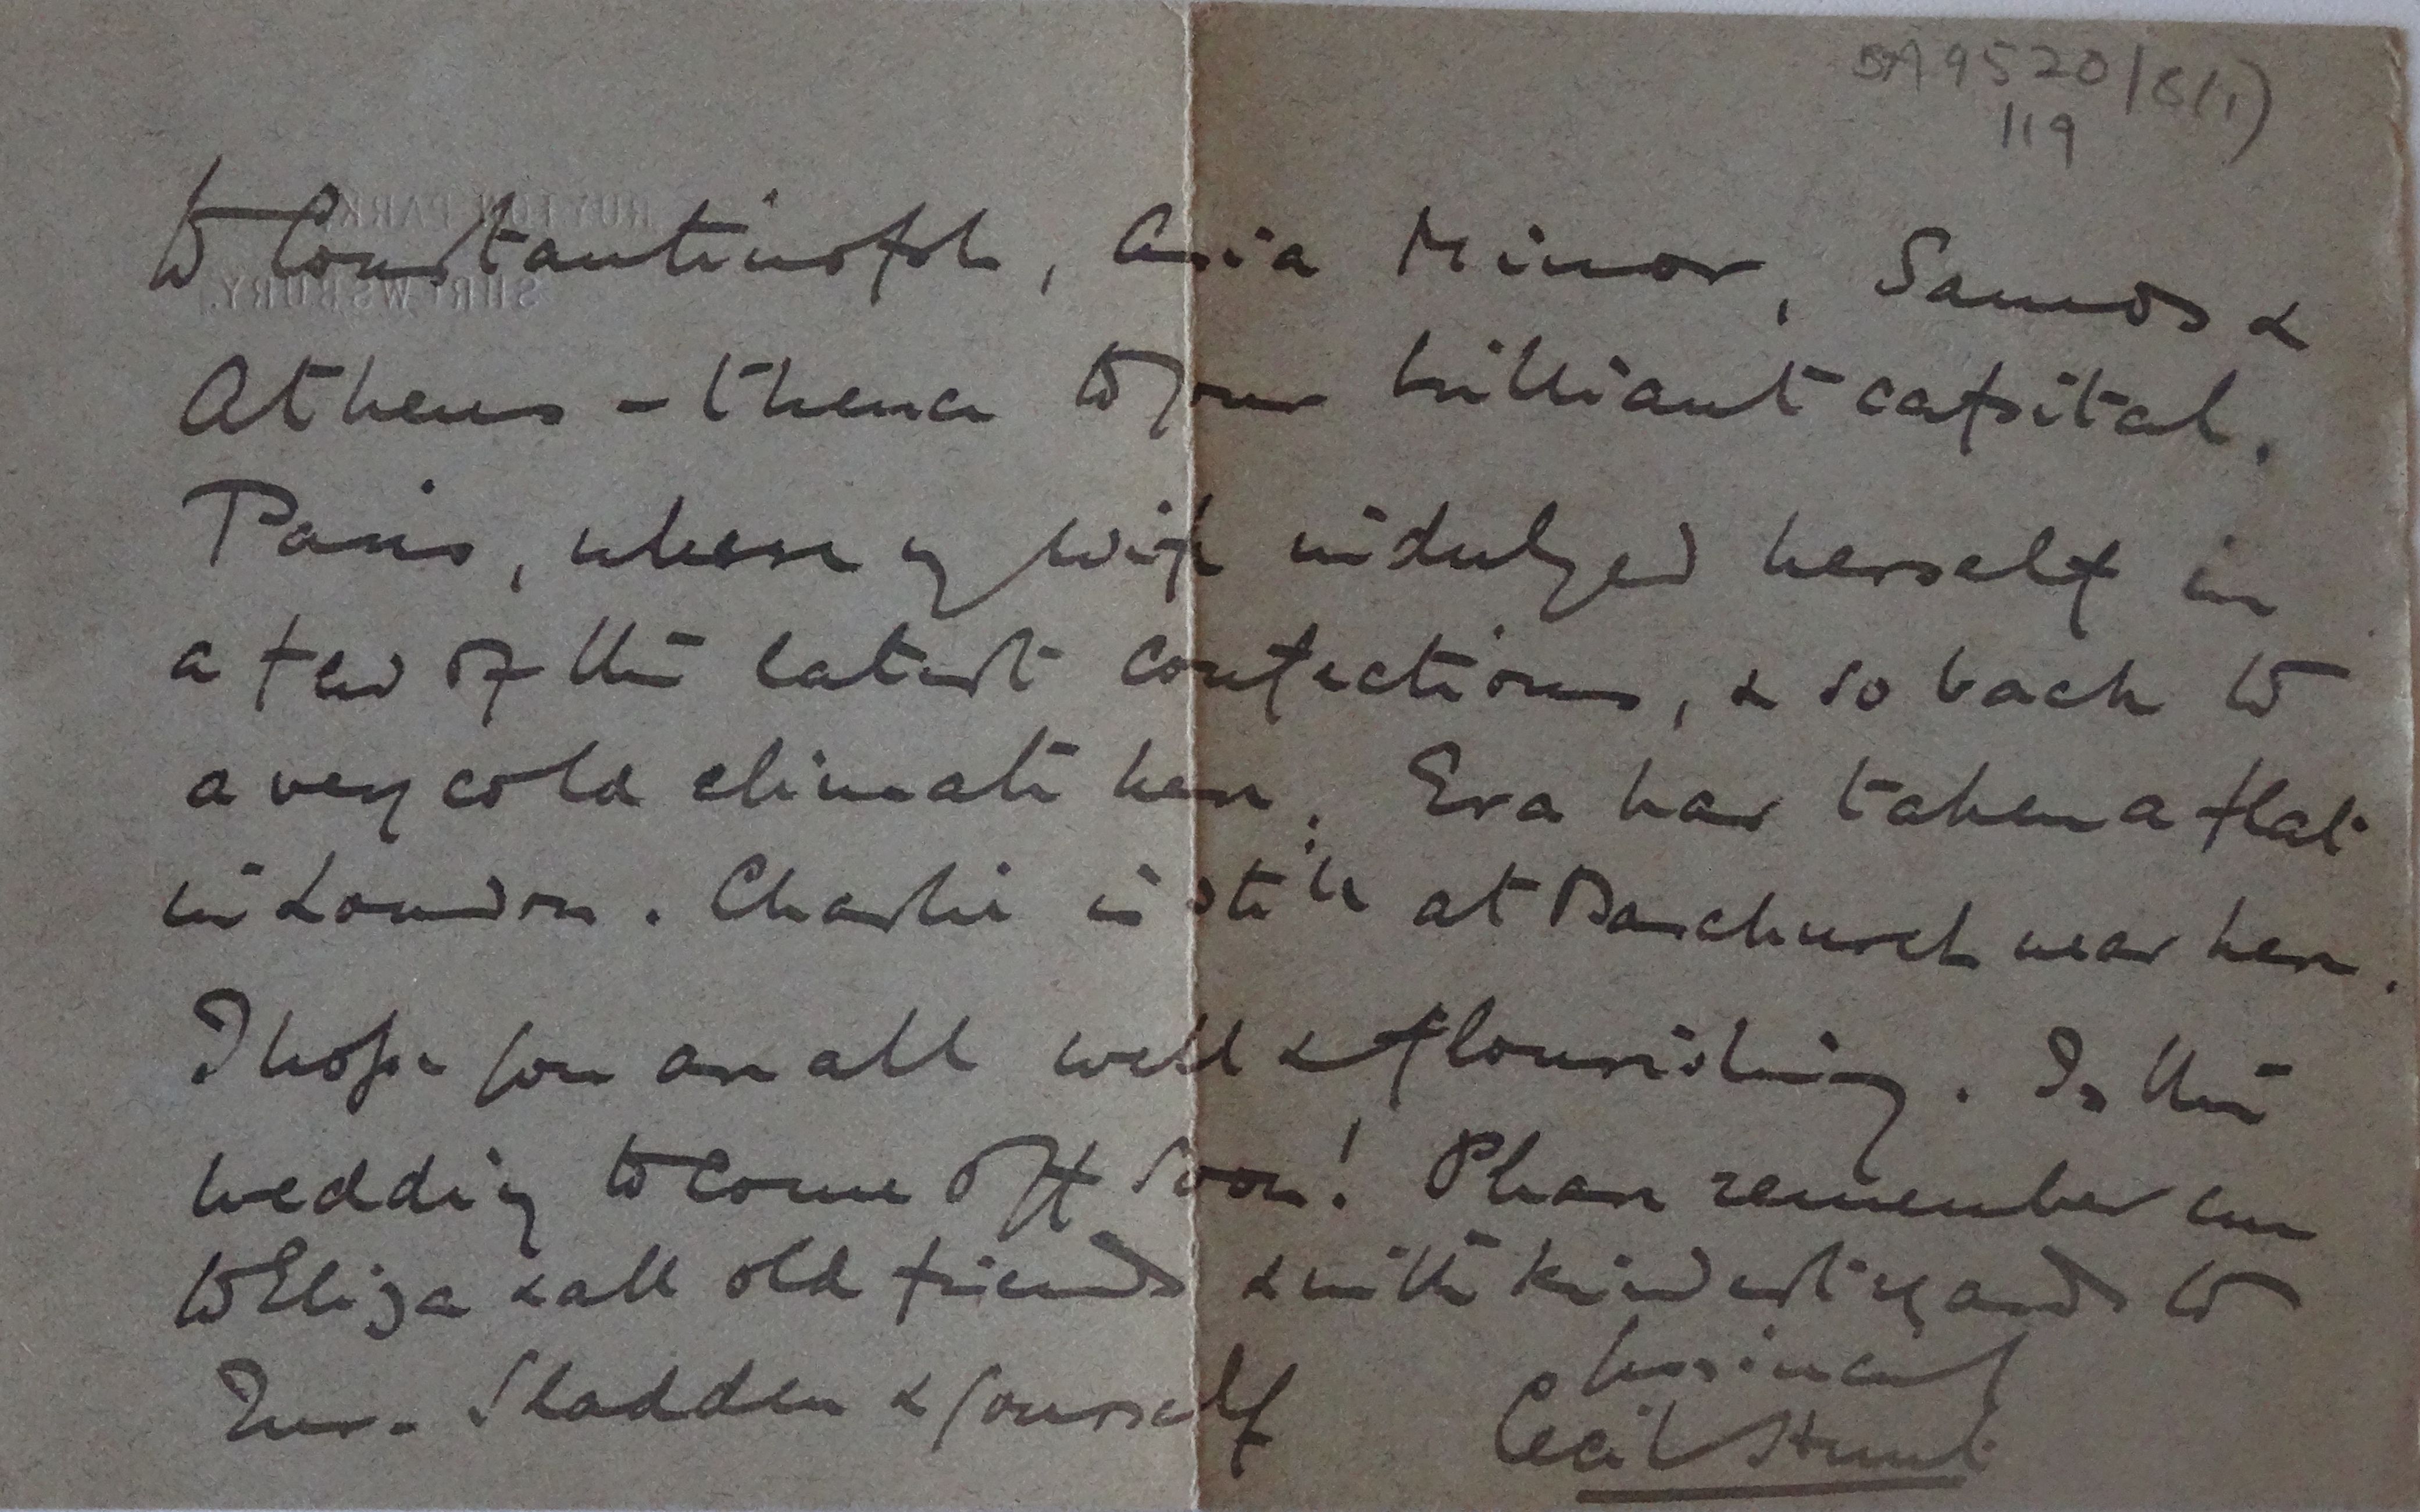 BA 9520/8(1)
119
RUYTON PARK,
SHREWSBURY.
to Constantinople, Asia Minor, Samos &
Athens – thence to your brilliant capital.
Paris, where my wife indulged herself in
a few of the latest confections, & so back to
a very cold climate here. Eva has taken a flat
in London. Charlie is still at Baschurch near here.
I hope you are all well & flourishing. Is the
wedding to come off soon! Please remember me
to Eliza & all old friends & with kindest regards to
Mrs. Sladden & yourself
Yrs sincerely
Cecil Hunt